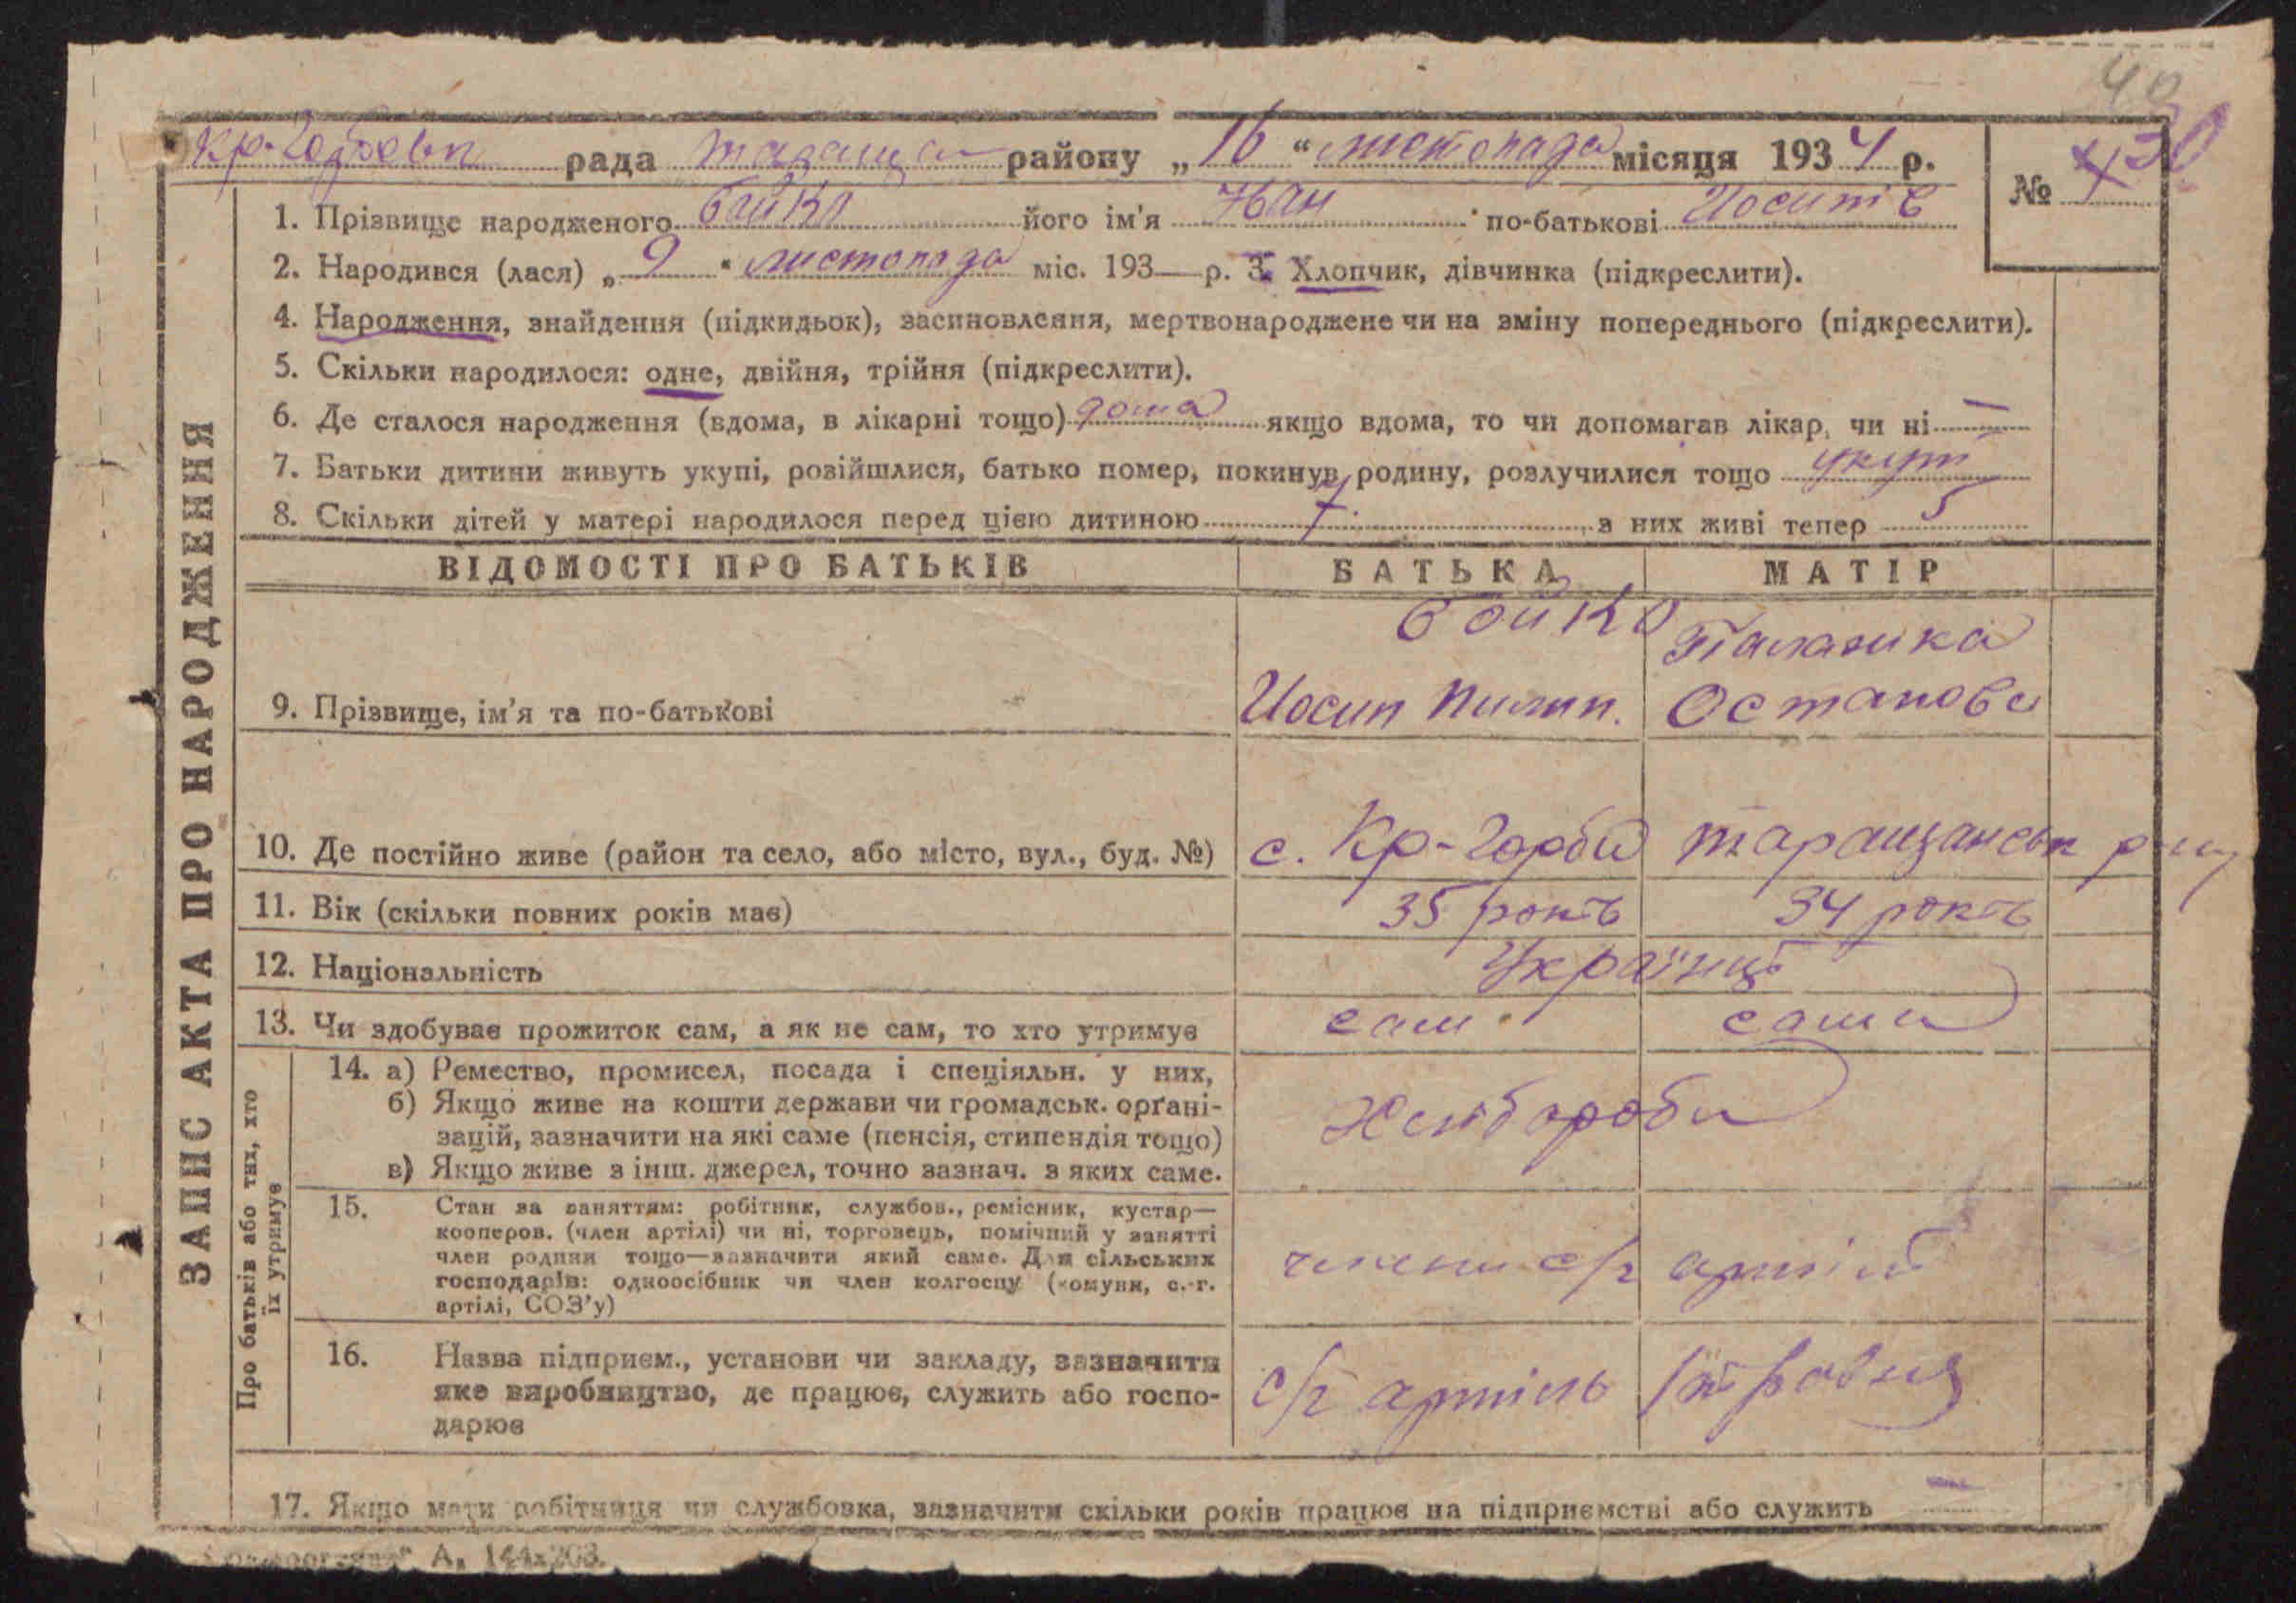 40
Кр-Горбовск рада таращан району „16“ листопада місяця 1934 р.
№ 30
1. Прізвище народженого Бойко його ім'я Іван по-батькові Иосипів
2. Народився (лася) „9“ листопада міс. 193— р. 3. Хлопчик, дівчинка (підкреслити).
4. Народження, знайдення (підкидьок), засиновлення, мертвонароджене чи на зміну попереднього (підкреслити).
5. Скільки народилося: одне, двійня, трійня (підкреслити).
6. Де сталося народження (вдома, в лікарні тощо) дома якщо вдома, то чи допомагав лікар, чи ні —
7. Батьки дитини живуть укупі, розійшлися, батько помер, покинув родину, розлучилися тощо укупі
8. Скільки дітей у матері народилося перед цією дитиною 7 з них живі тепер 5
ЗАПИС АКТА ПРО НАРОДЖЕННЯ
ВІДОМОСТІ ПРО БАТЬКІВ БАТЬКА МАТІР
9. Прізвище, ім'я та по-батькові
Бойко
Иосип Пилип.
Палажка
Остапова
10. Де постійно живе (район та село, або місто, вул., буд. №) с. Кр-Горби таращанськ р-ну
11. Вік (скільки повних років має) 35 років 34 років
12. Національність Українці
13. Чи здобуває прожиток сам, а як не сам, то хто утримує сам сама
Про батьків або тих, хто
їх утримує
14. а) Ремество, промисел, посада і спеціяльн. у них,
б) Якщо живе на кошти держави чи громадськ. орґані-
зацій, зазначити на які саме (пенсія, стипендія тощо)
в) Якщо живе з інш. джерел, точно зазнач. з яких саме.
Хліборобы
15. Стан за заняттям: робітник, службов., ремісник, кустар—
кооперов. (член артілі) чи ні, торговець, помічний у занятті
член родини тощо—зазначити який саме. Для сільських
господарів: одноосібник чи член колгоспу (комуни, с.-г.
артілі, СОЗ'у)
члени с/г артілі
16. Назва підприєм., установи чи закладу, зазначити
яке виробництво, де працює, служить або госпо-
дарює
с/г артіль
17. Якщо мати робітниця чи службовка, зазначити скільки років працює на підприємстві або служить —
А. 144х203.